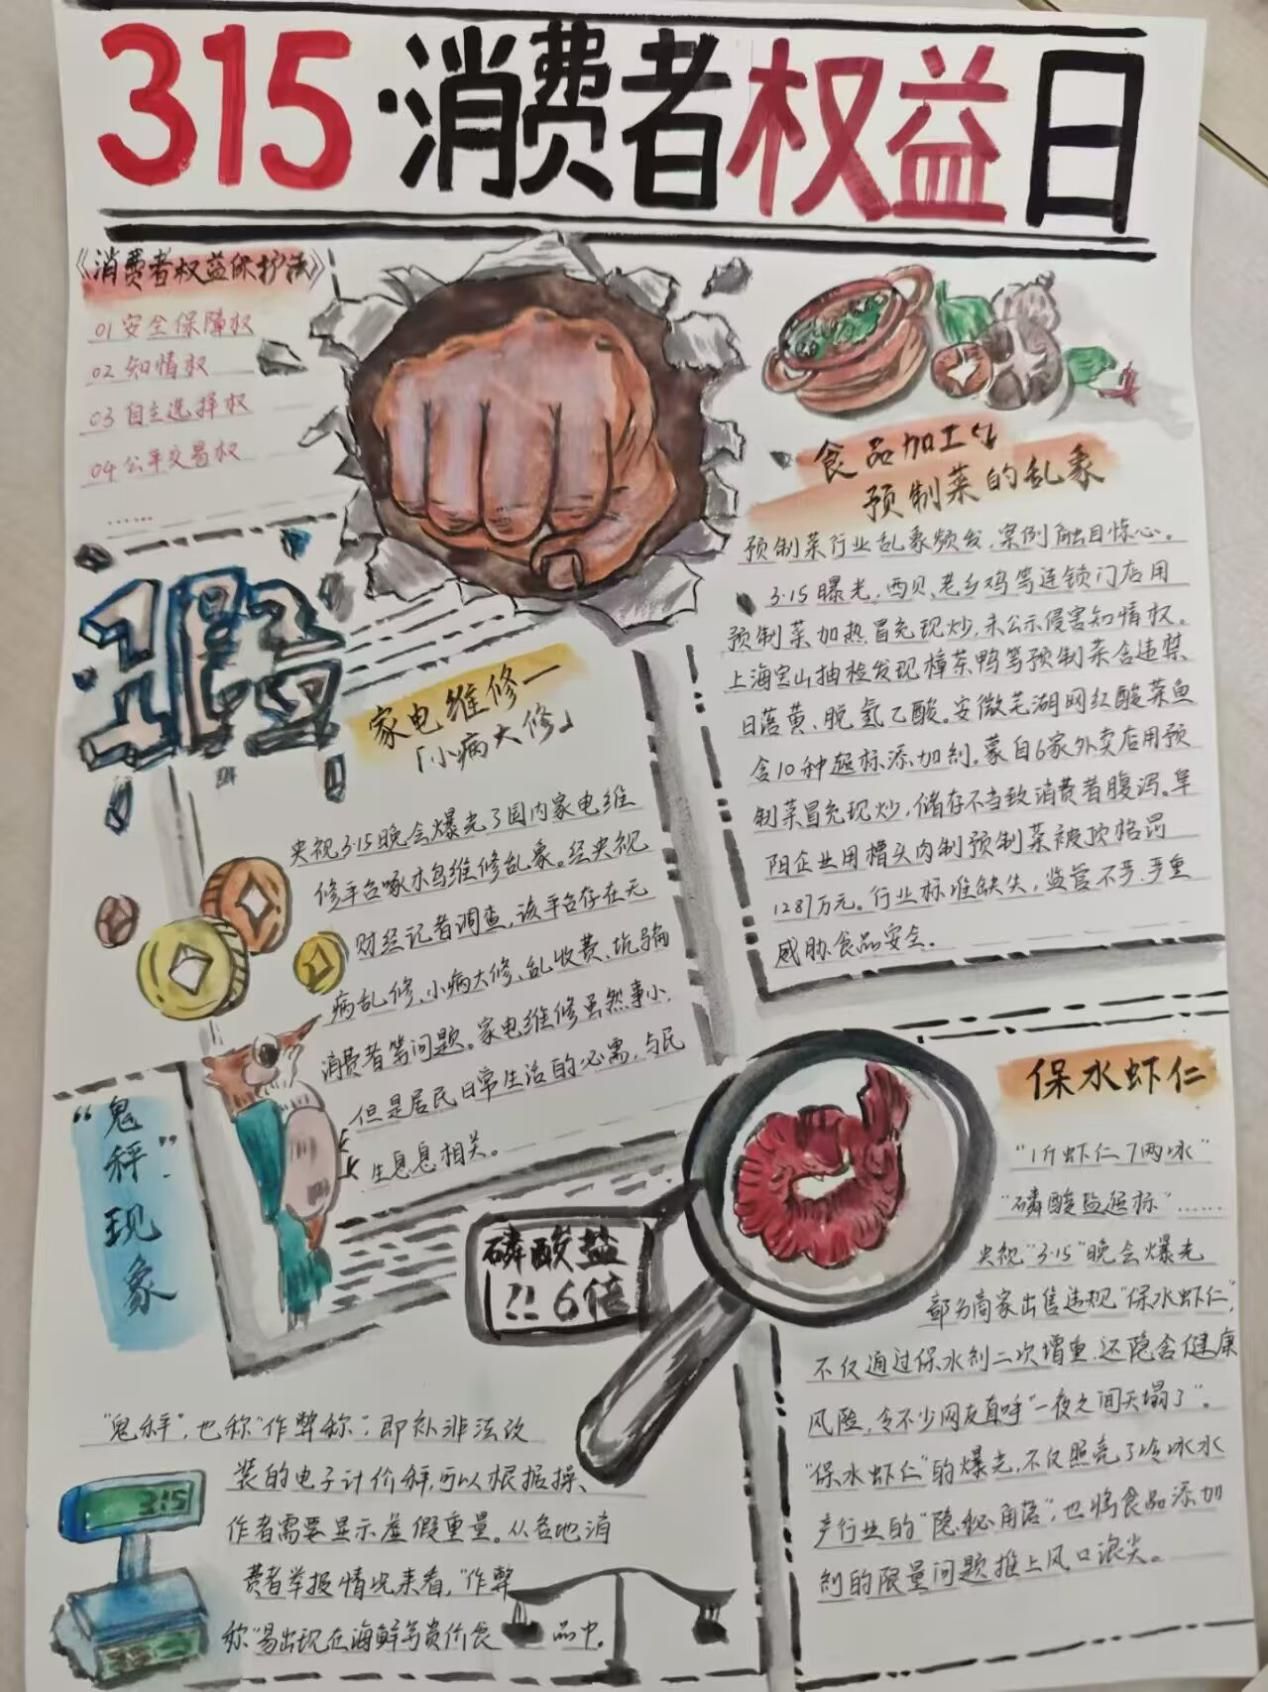 315·消费者权益日
《消费者权益保护法》
01 安全保障权
02 知情权
03 自主选择权
04 公平交易权
......
食品加工
预制菜的乱象
预制菜行业乱象频发,案例触目惊心。
3·15曝光,西贝、老乡鸡等连锁门店用
预制菜加热冒充现炒,未公示侵害知情权。
上海宝山抽检发现樟茶鸭等预制菜含违禁
日落黄、脱氢乙酸。安徽芜湖网红酸菜鱼
含10种超标添加剂。蒙自6家外卖店用预
制菜冒充现炒,储存不当致消费者腹泻。阜
阳企业用槽头肉制预制菜被顶格罚
1287万元。行业标准缺失,监管不严,严重
威胁食品安全。
家电维修一
「小病大修」
央视3·15晚会爆光了国内家电维
修平台啄木鸟维修乱象。经央视
财经记者调查,该平台存在无
病乱修、小病大修、乱收费、坑骗
消费者等问题。家电维修虽然事小,
但是居民日常生活的必需,与民
生息息相关。
“鬼秤”现象
磷酸盐
!! 6倍
保水虾仁
“1斤虾仁7两冰”
“磷酸盐超标”......
央视“3·15”晚会爆光
部分商家出售违规“保水虾仁”,
不仅通过保水剂二次增重,还隐含健康
风险,令不少网友直呼“一夜之间天塌了”。
“保水虾仁”的爆光,不仅照亮了冷冰水
产行业的“隐秘角落”,也将食品添加
剂的限量问题推上风口浪尖。
“鬼秤”,也称“作弊称”,即补非法改
装的电子计价秤,可以根据操
作者需要显示虚假重量。从各地消
费者举报情况来看,“作弊
称”易出现在海鲜等贵价食品中。
315